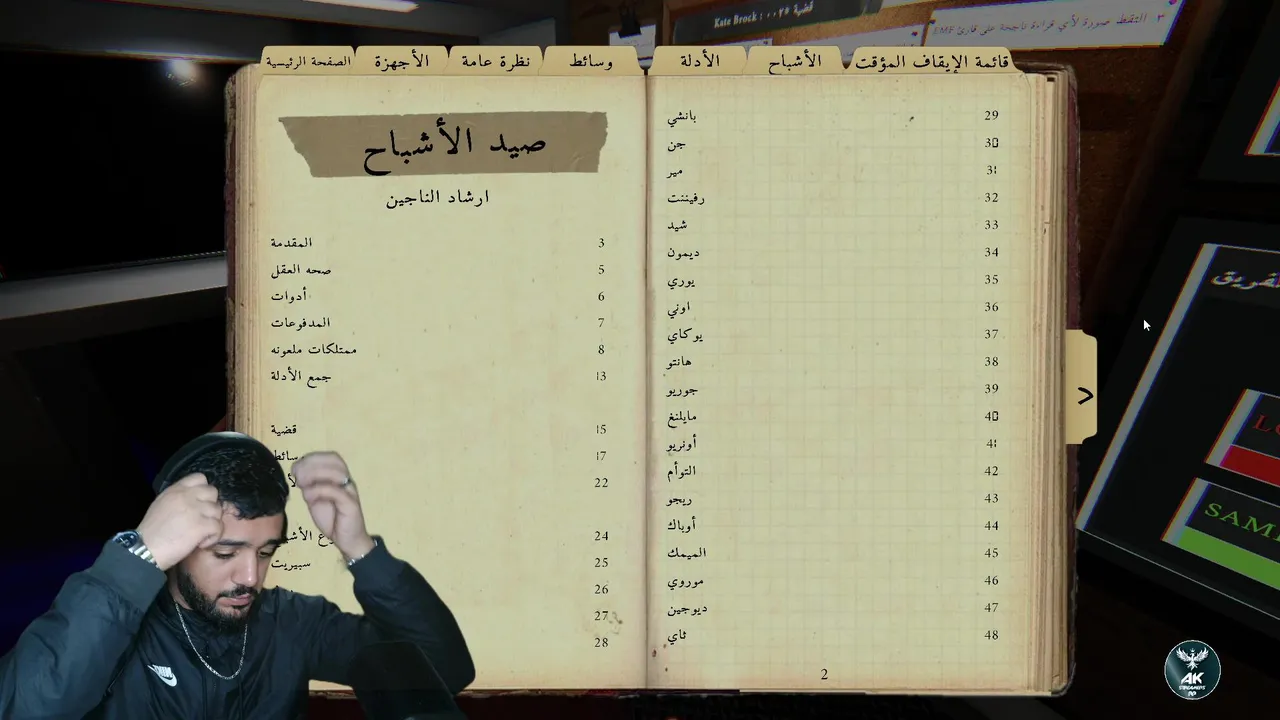 قضية #٠٠٢ : Kate Brock
٣ التقط صورة لأي قراءة ناجحة على قارئ EMF
الصفحة الرئيسية
الأجهزة
نظرة عامة
وسائط
الأدلة
الأشباح
قائمة الإيقاف المؤقت
صيد الأشباح
ارشاد الناجين
المقدمة 3
صحه العقل 5
أدوات 6
المدفوعات 7
ممتلكات ملعونه 8
جمع الأدلة 13
قضية 15
سائط 17
22
24
سبيريت 25
26
27
28
بانشي 29
جن 30
مير 31
رفيننت 32
شيد 33
ديمون 34
يوري 35
اوني 36
يوكاي 37
هانتو 38
جوريو 39
مايلنغ 40
أونريو 41
التوأم 42
ريجو 43
أوباك 44
الميمك 45
موروي 46
ديوجين 47
ثاي 48
2
>
AK
STREAMER